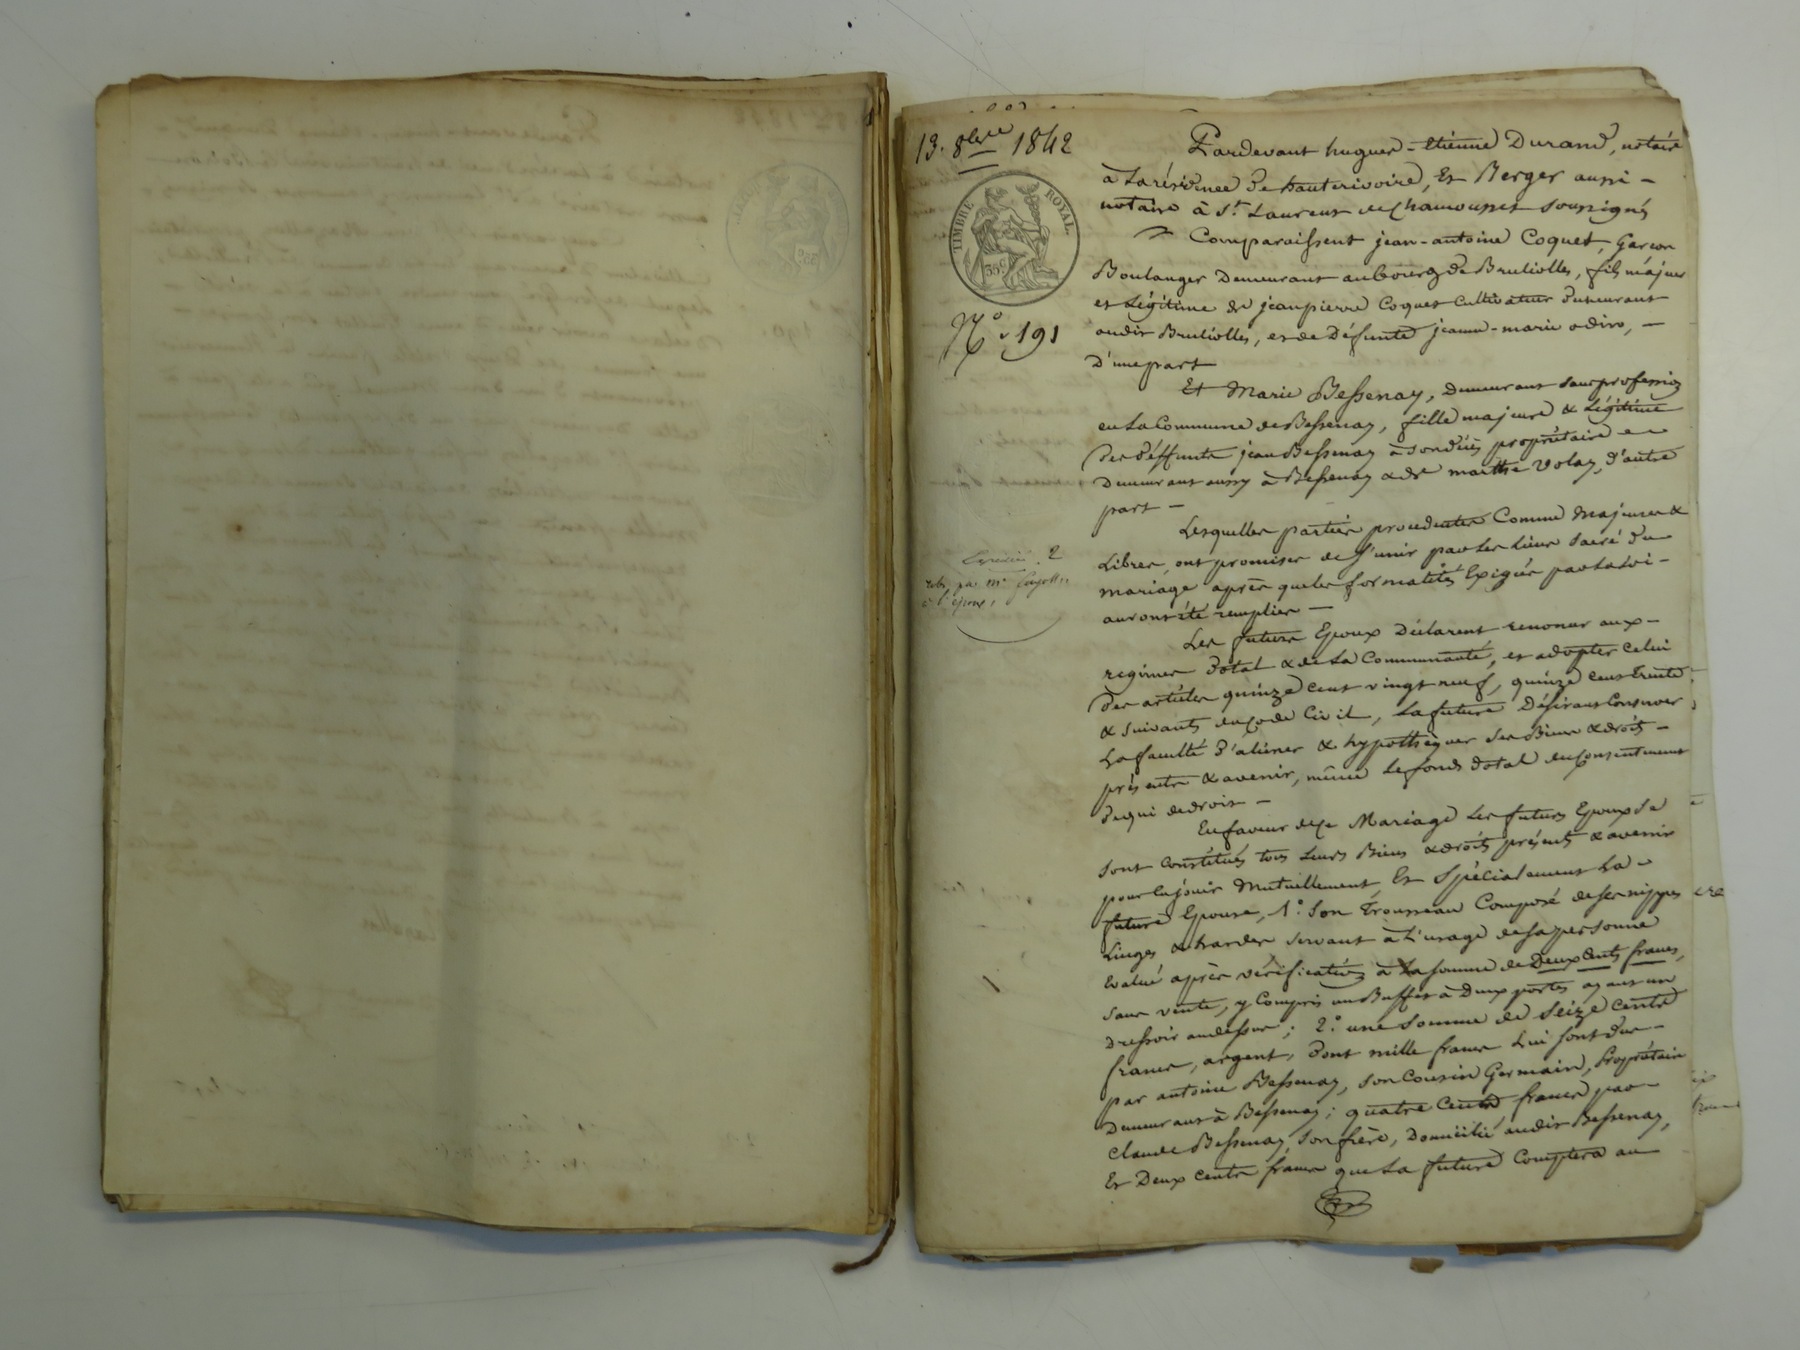 13. 8bre 1842
TIMBRE ROYAL.
35c
No. 191
Expédié 2
Pardevant hugues-étienne Durand, notaire
à la résidence de hauterivoire, Et Berger aussi -
notaire à St. Laurent de Chamousset soussignés
Comparaissent jean-antoine Coquet, Garçon
Boulanger Demeurant au bourg de Brullioles, fils majeur
et Légitime de jean pierre Coquet Cultivateur demeurant
audit Brullioles, et de Défunte jeanne-marie
D'une part
Et Marie Bessenay, Demeurant sans profession
en La Commune de Bessenay, fille majeure & Légitime
de déffunts jean Bessenay à son décès propriétaire
Demeurant aussy à Bessenay & de marthe Volay, d'autre
part -
Lesquelles parties procédantes Comme Majeures &
Libres, ont promises de s'unir par Les Liens sacré du
mariage après que les formalités Exigées par La Loi -
auront été remplies -
Les futurs Epoux Déclarent renoncer aux -
regimes dotal & de La Communauté, et adopter Celui
des articles quinze cent vingt neuf, quinze cent trente
& suivants du Code Civil, La future Désirant Conserver
La faculté D'aliéner & hypothèquer ses Biens & droits -
présents & avenir, même Le fonds dotal du Consentement
de qui de droit -
En faveur de Ce Mariage Les futurs Epoux se
sont Constitués tous Leurs Biens & droits présents & avenir
pour En jouir Mutuellement, Et Spécialement La
future Epouse, 1.o Son Trousseau Composé de ses nippes
Linges & hardes servant à L'usage de sa personne
Evalué après vérification à La somme de Deux Cents francs,
sans vente, y Compris un Buffet à Deux portes ayant un
dressoir au dessus; 2.o une Somme de Seize Cents
francs, argent, dont mille francs Lui sont dus -
par antoine Bessenay, son Cousin Germain, Propriétaire
Demeurant à Bessenay; quatre Cents francs par -
Claude Bessenay son frère, Domicilié audit Bessenay,
Et Deux Cents francs que La future Comptera au